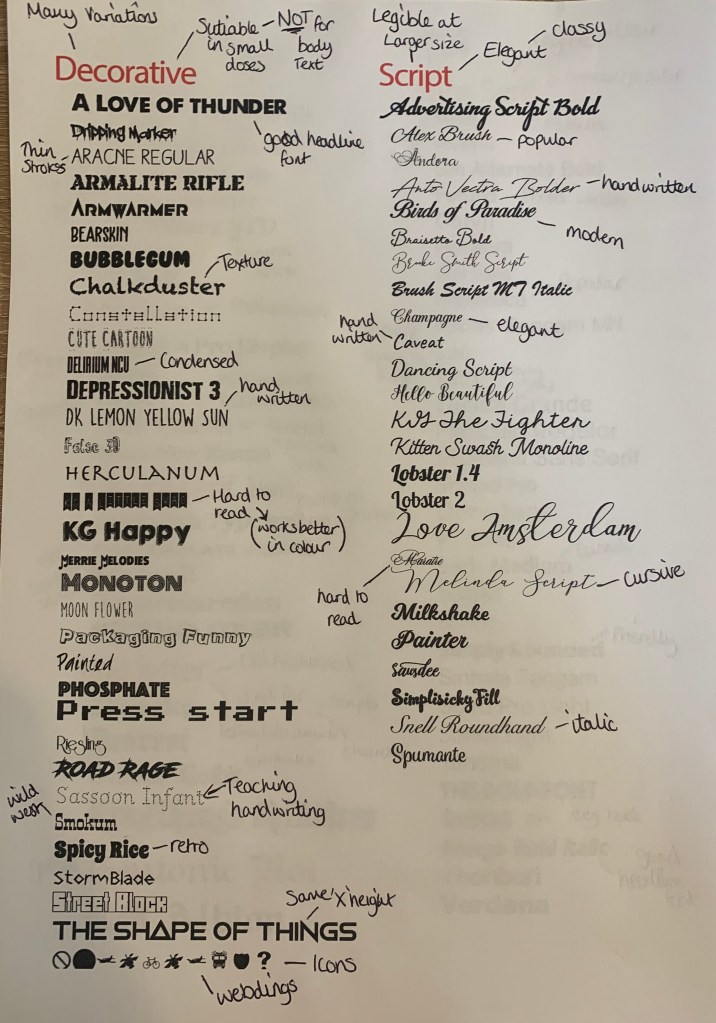 Many Variations
Sutiable in small doses — NOT for body Text
Decorative
A LOVE OF THUNDER
good headline font
Dripping Marker
Thin Strokes
ARACNE REGULAR
ARMALITE RIFLE
ARMWARMER
BEARSKIN
BUBBLEGUM
Texture
Chalkduster
Constellation
CUTE CARTOON
DELIRIUM NCU — Condensed
DEPRESSIONIST 3
hand written
DK LEMON YELLOW SUN
False 3D
HERCULANUM
Hard to read
(works better in colour)
KG Happy
MERRIE MELODIES
MONOTON
MOON FLOWER
Packaging Funny
Painted
PHOSPHATE
Press start
Riesling
ROAD RAGE
Sassoon Infant
Teaching handwriting
wild west
Smokum
Spicy Rice — retro
StormBlade
STREET BLOCK
Same 'x' height
THE SHAPE OF THINGS
? — Icons
webdings
Legible at Larger size
Elegant
classy
Script
Advertising Script Bold
Alex Brush — popular
Andora
Anto Vectra Bolder — handwritten
Birds of Paradise
modern
Braisetto Bold
Brooke Smith Script
Brush Script MT Italic
Champagne — elegant
hand written
Caveat
Dancing Script
Hello Beautiful
KG The Fighter
Kitten Swash Monoline
Lobster 1.4
Lobster 2
Love Amsterdam
hard to read
Melinda Script — cursive
Milkshake
Painter
Simplisicky Fill
Snell Roundhand — italic
Spumante